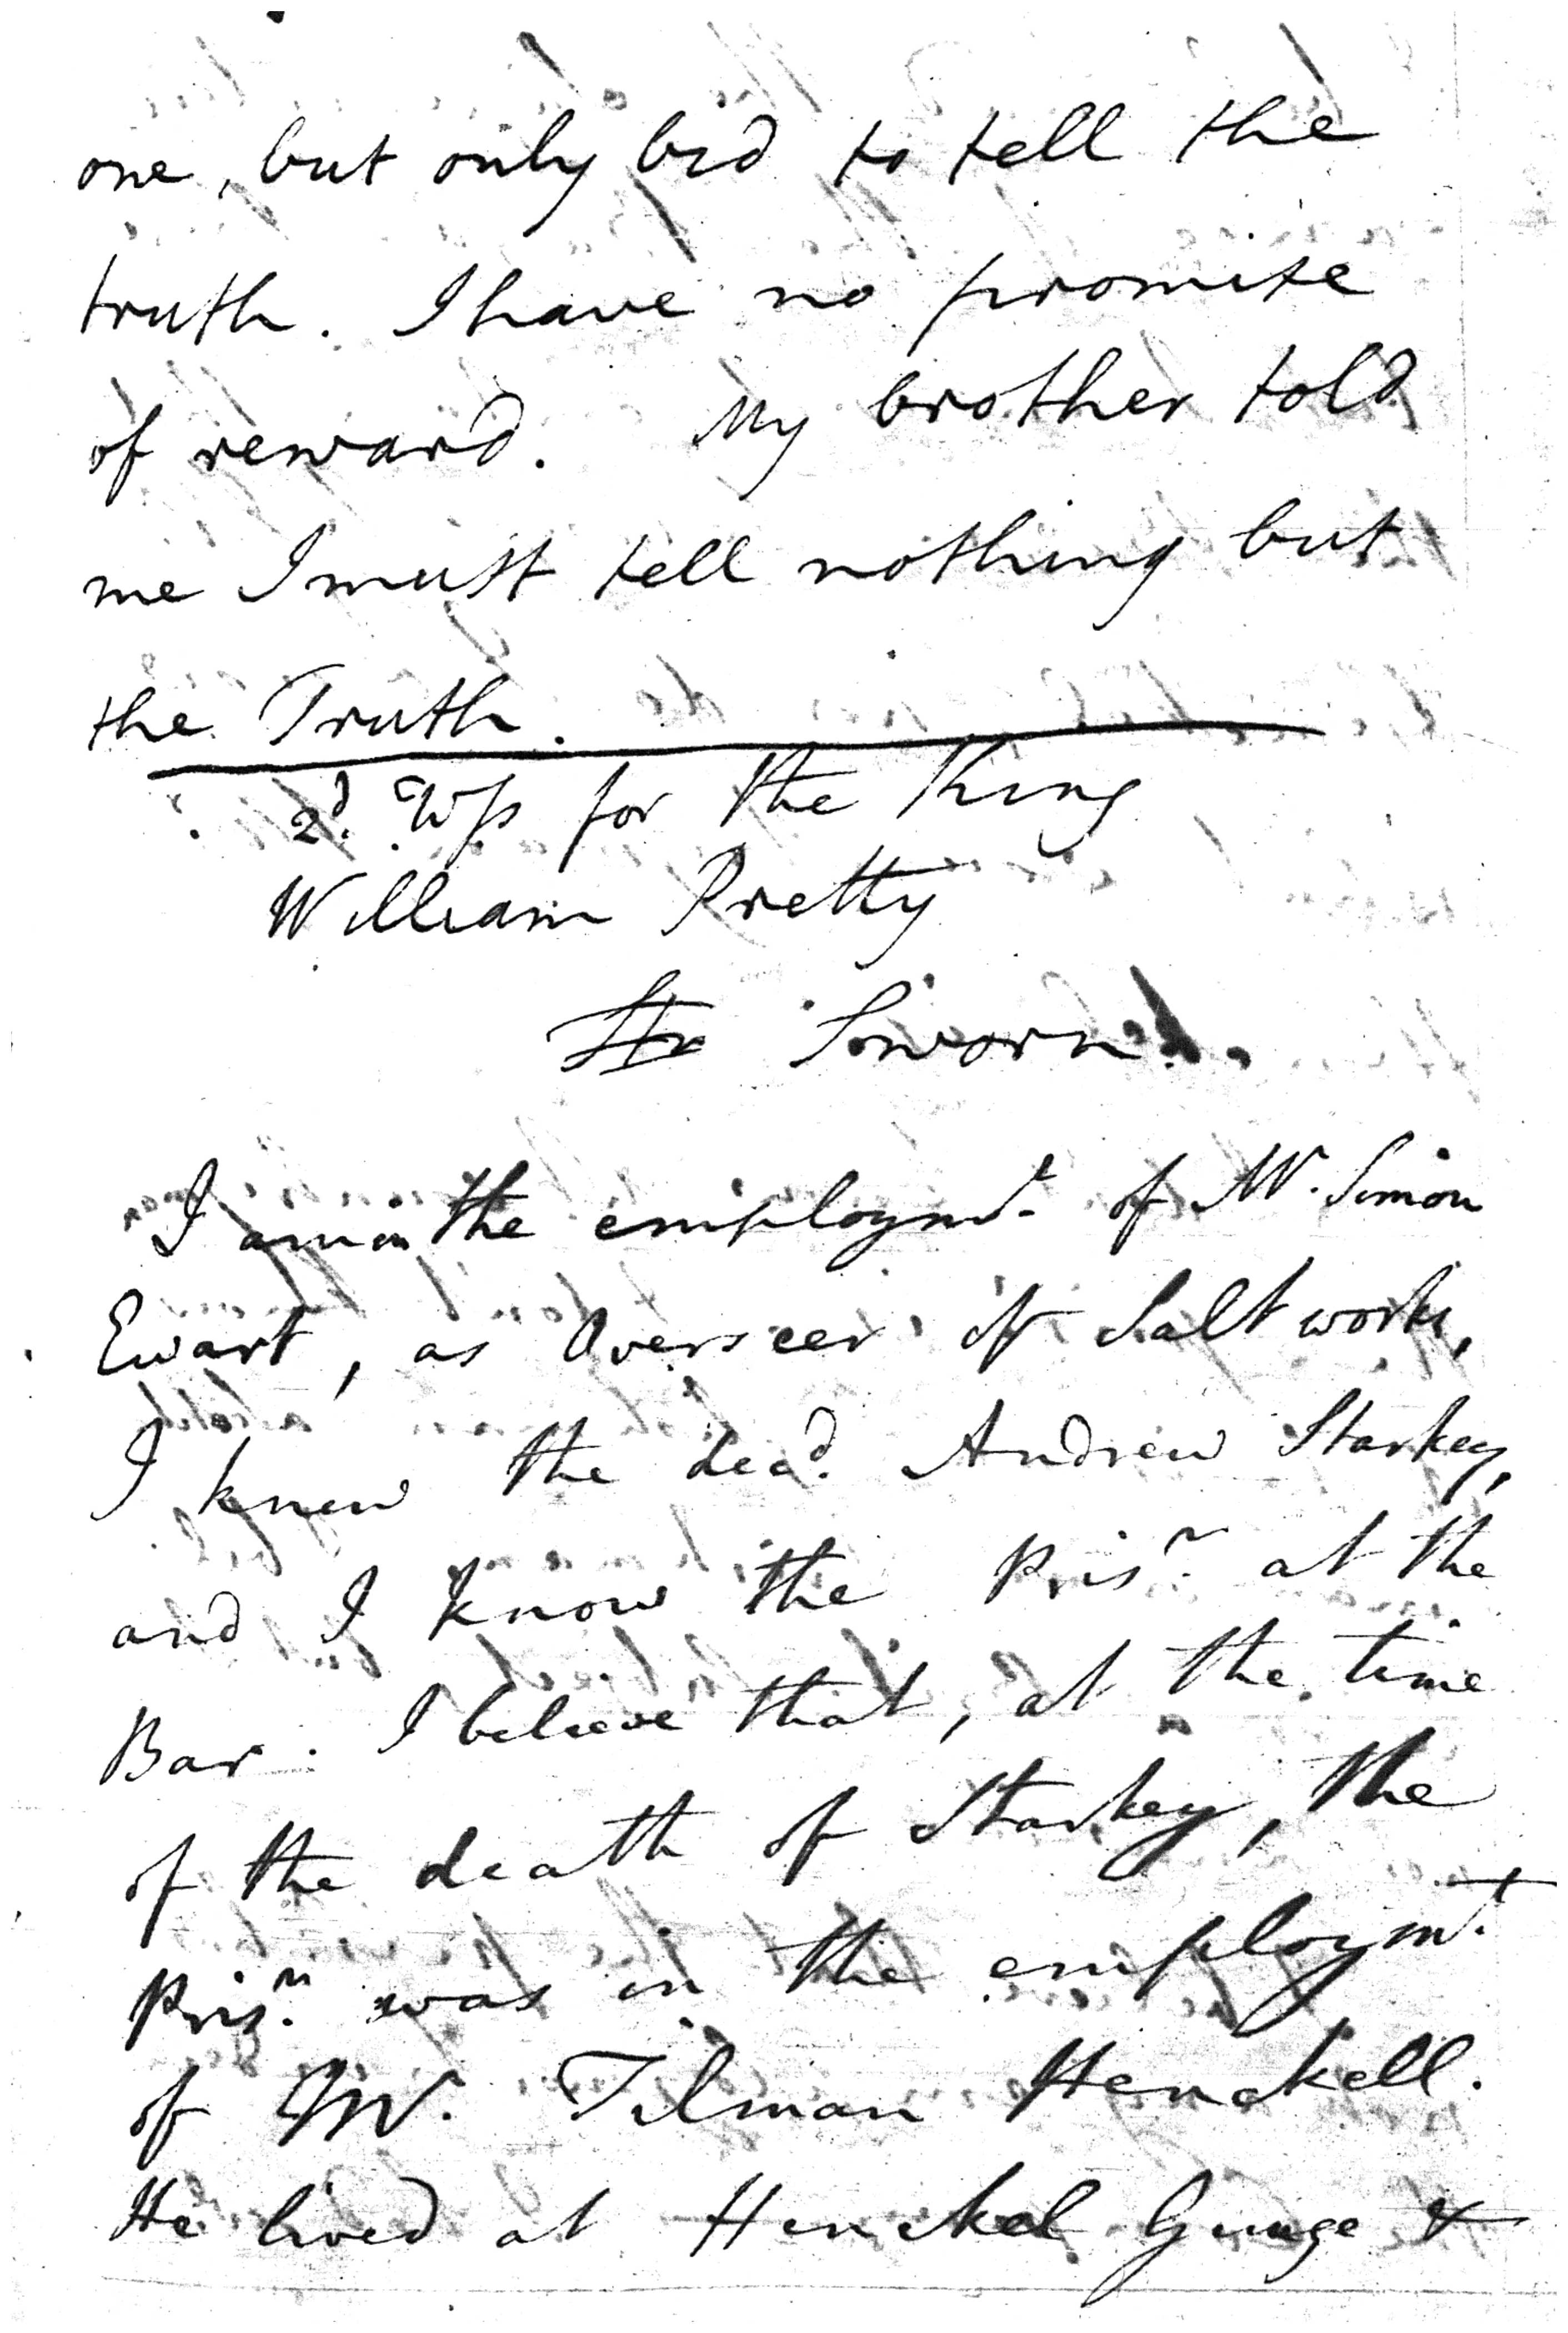 one, but only bid to tell the
truth. I have no promise
of reward. My brother told
me I must tell nothing but
the Truth.
2d. Wss for the King
William Pretty
Sworn.
I am in the employmt. of Mr. Simon
Ewart, as Overseer of Salt works,
I knew the decd. Andrew Starkey,
and I know the Prisr. at the
Bar. I believe that, at the time
of the death of Starkey, the
Prisr. was in the employmt.
of Mr. Tilman Henckell.
He lived at Henckel Gunge &